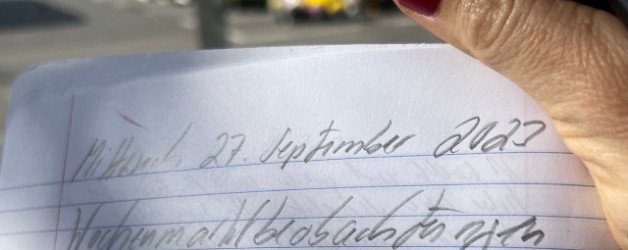 Mittwoch, 27. September 2023
Wochenmarktbeobachtungen